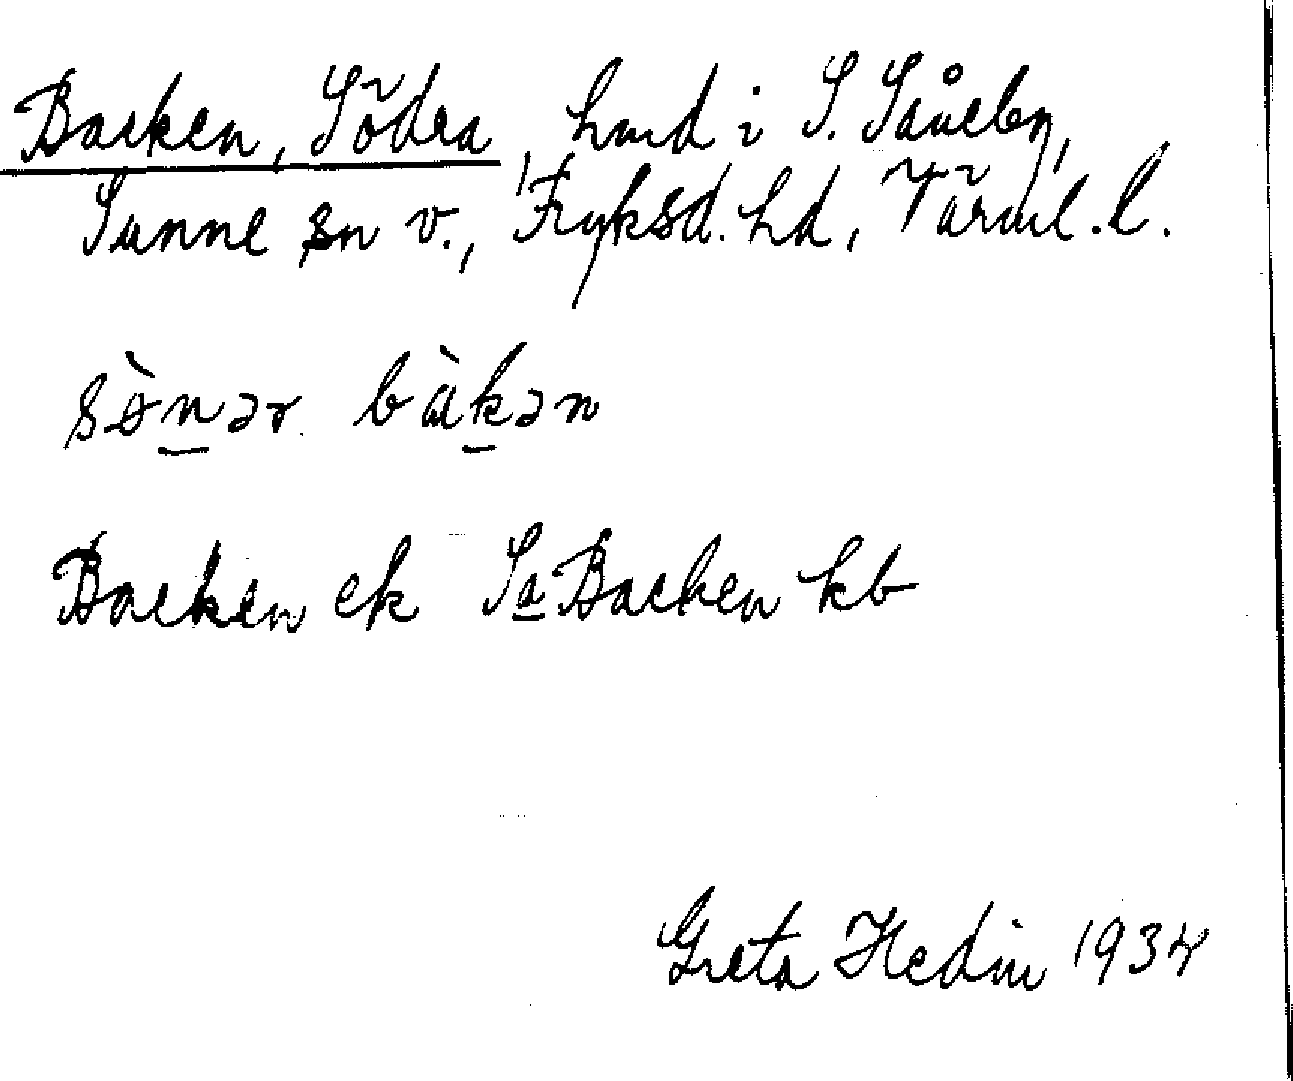 Backen, Södra, hmd i S. Såneby,
Sunne sn v., Fryksd. hd, Värml. l.
sø̀n̲ər bàk̲ən
Backen ek Sa Backen kb
Greta Hedin 1934